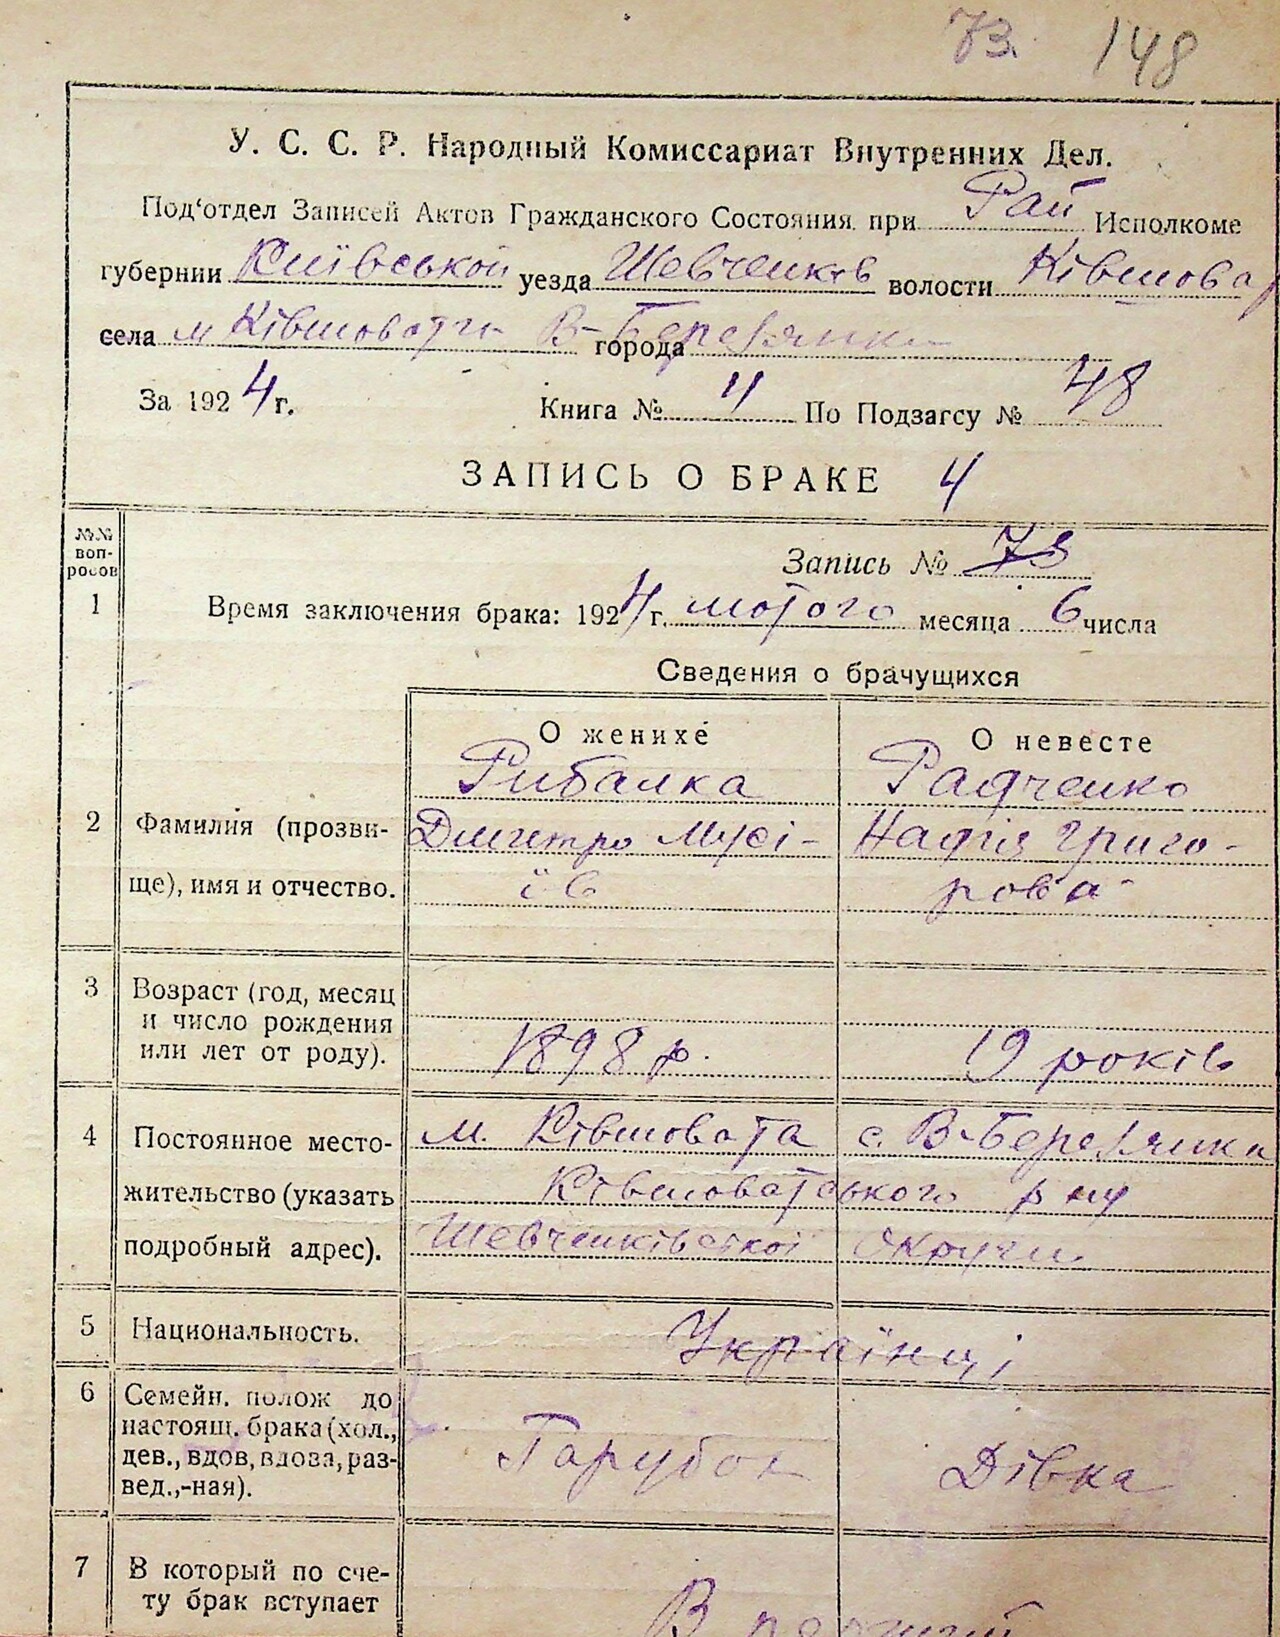 73. 148
У. С. С. Р. Народный Комиссариат Внутренних Дел.
Под'отдел Записей Актов Гражданского Состояния при Рай Исполкоме
губернии Київської уезда Шевченків волости Ківшоват
села м Ківшоватги В-Березянки города
За 1924 г. Книга № 4 По Подзагсу № 48
ЗАПИСЬ О БРАКЕ 4
№№ воп-
росов
Запись № 73
1 Время заключения брака: 1924 г. лютого месяца 6 числа
Сведения о брачущихся
О женихе О невесте
Рибалка Радченко
2 Фамилия (прозви- Дмитро Мусі- Надія Григо-
ще), имя и отчество. їв рова
3 Возраст (год, месяц
и число рождения
или лет от роду). 1898 р. 19 років
4 Постоянное место- м. Ківшовата с. В-Березянка
жительство (указать Ківшоватського р ну
подробный адрес). Шевченківської округи
5 Национальность. Українці
6 Семейн. полож до
настоящ. брака (хол.,
дев., вдов, вдова, раз- Парубок Дівка
вед.,-ная).
7 В который по сче-
ту брак вступает В перший